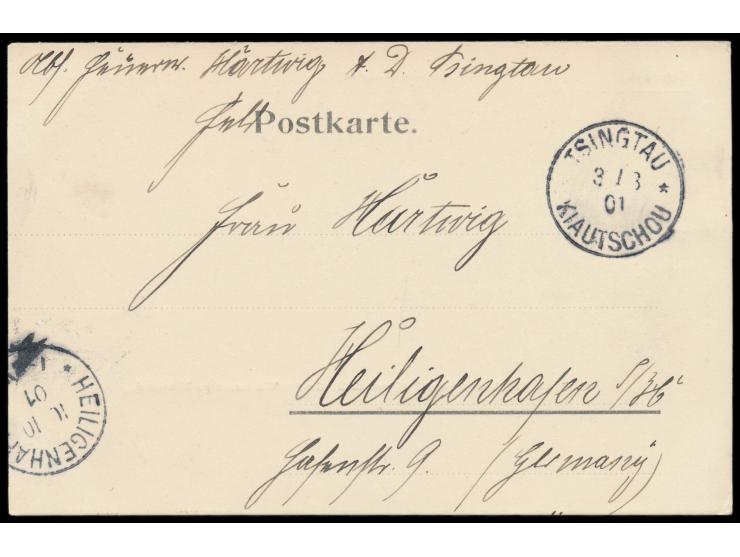 Abs. Feuerw. Hartwig z. D. Tsingtau
Feld Postkarte.
TSINGTAU
3/8
01
KIAUTSCHOU
Frau Hartwig
Heiligenhafen
Hafenstr. 9. (Germany)
HEILIGENHAF
10. 10
01